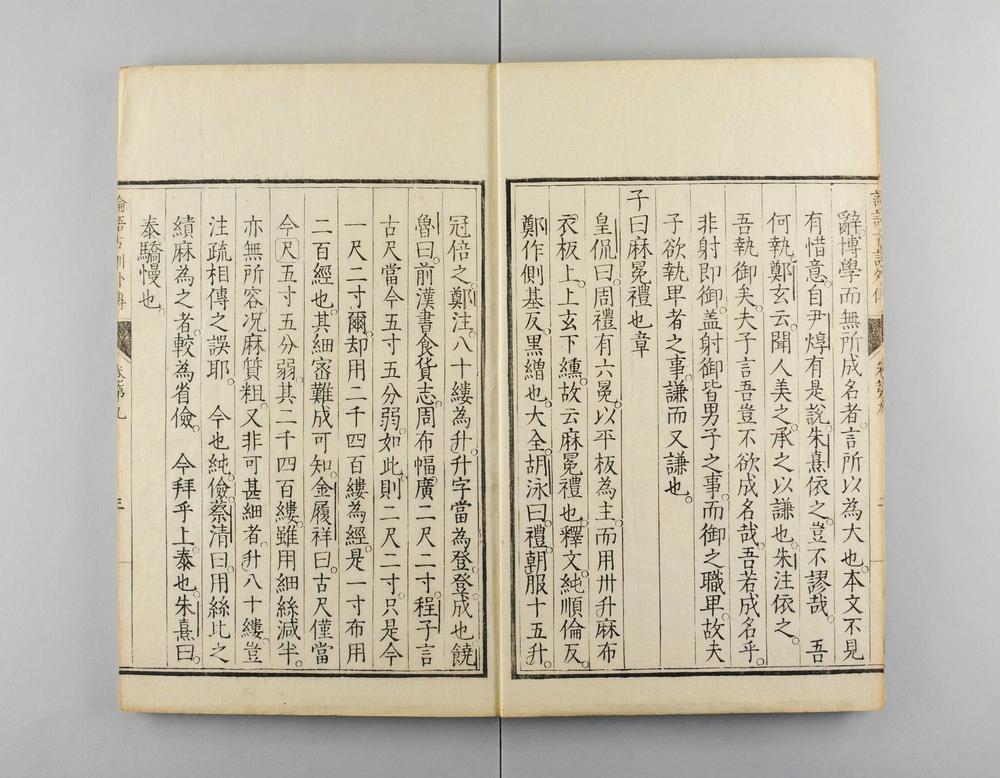 辭博學而無所成名者言所以為大也。本文不見
有惜意。自尹焞有是說。朱熹依之。豈不謬哉。 吾
何執。鄭玄云。聞人美之。承之以謙也。朱注依之。
吾執御矣。夫子言。吾豈不欲成名哉。吾若成名乎。
非射即御。盖射御皆男子之事。而御之職卑。故夫
子欲執卑者之事。謙而又謙也。
子曰麻冕禮也章
皇侃曰。周禮有六冕。以平板為主。而用卅升麻布
衣板上。上玄下纁。故云麻冕禮也。釋文純順倫反。
鄭作側基反。黑繒也。大全胡泳曰。禮。朝服十五升。
冠倍之。鄭注。八十縷為升。升字當為登。登。成也。饒
魯曰。前漢書食貨志。周布幅廣二尺二寸。程子言
古尺當今五寸五分弱。如此則二尺二寸。只是今
一尺二寸爾。却用二千四百縷為經。是一寸布用
二百經也。其細密難成可知。金履祥曰。古尺僅當
今尺五寸五分弱。其二千四百縷。雖用細絲減半。
亦無所容。况麻質粗。又非可甚細者。升八十縷。豈
注疏相傳之誤耶。 今也純。儉。蔡清曰。用絲比之
績麻為之者。較為省儉。 今拜乎上泰也。朱熹曰。
泰驕慢也。
卷第九
三